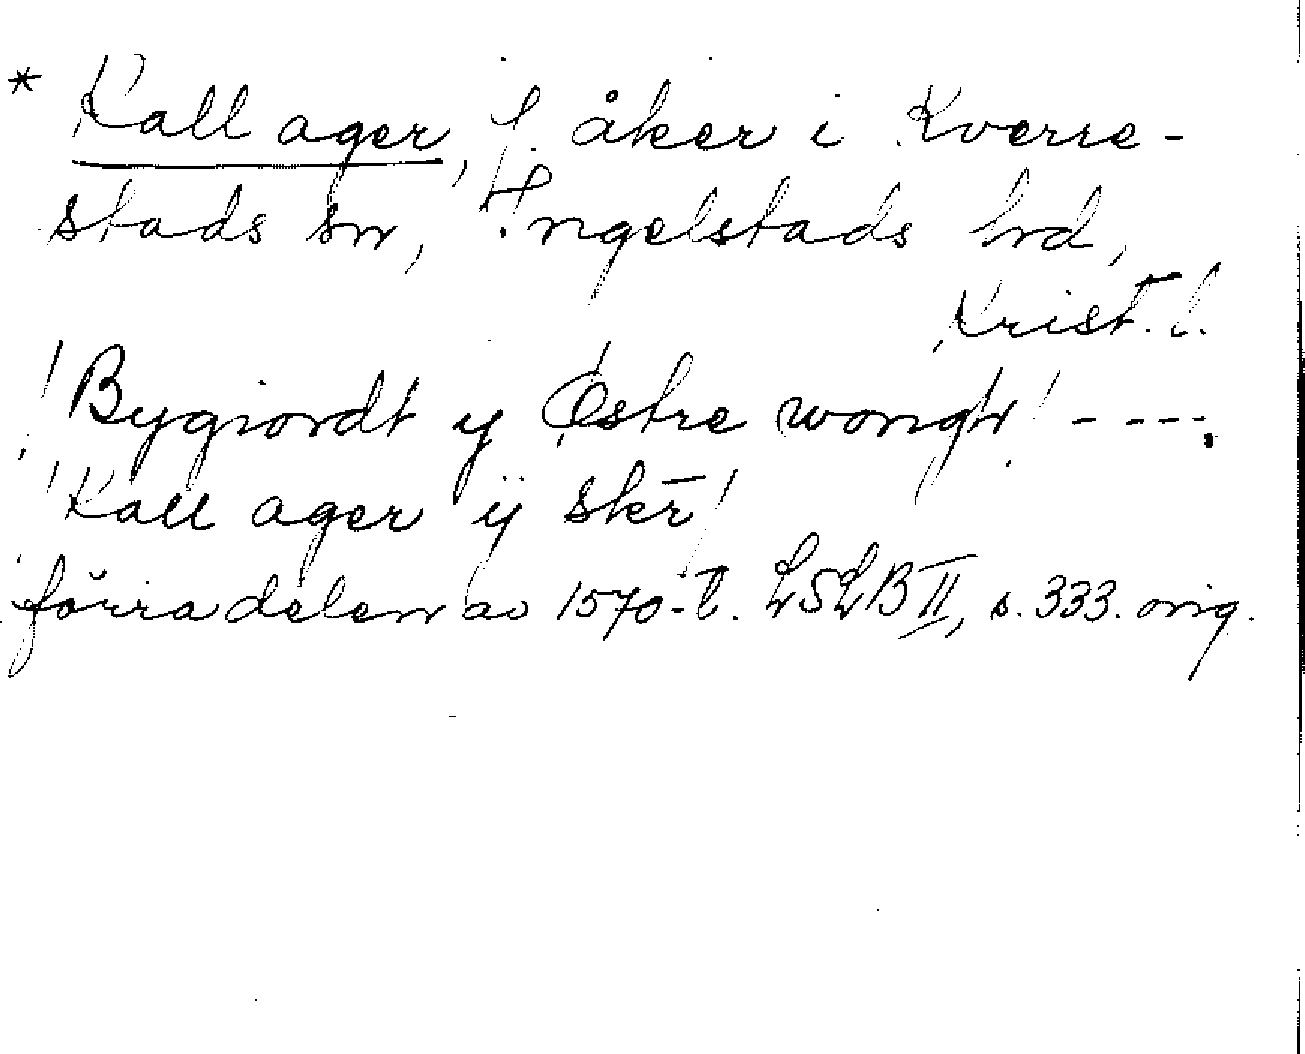 * Kall ager, f. åker i Kverre-
stads sn, Ingelstads hrd,
Krist. l.
'Bygiordt y Østre wongh' ----
'Kall ager ÿ skr̄'
förra delen av 1570-t. LSLB II, s. 333. orig.